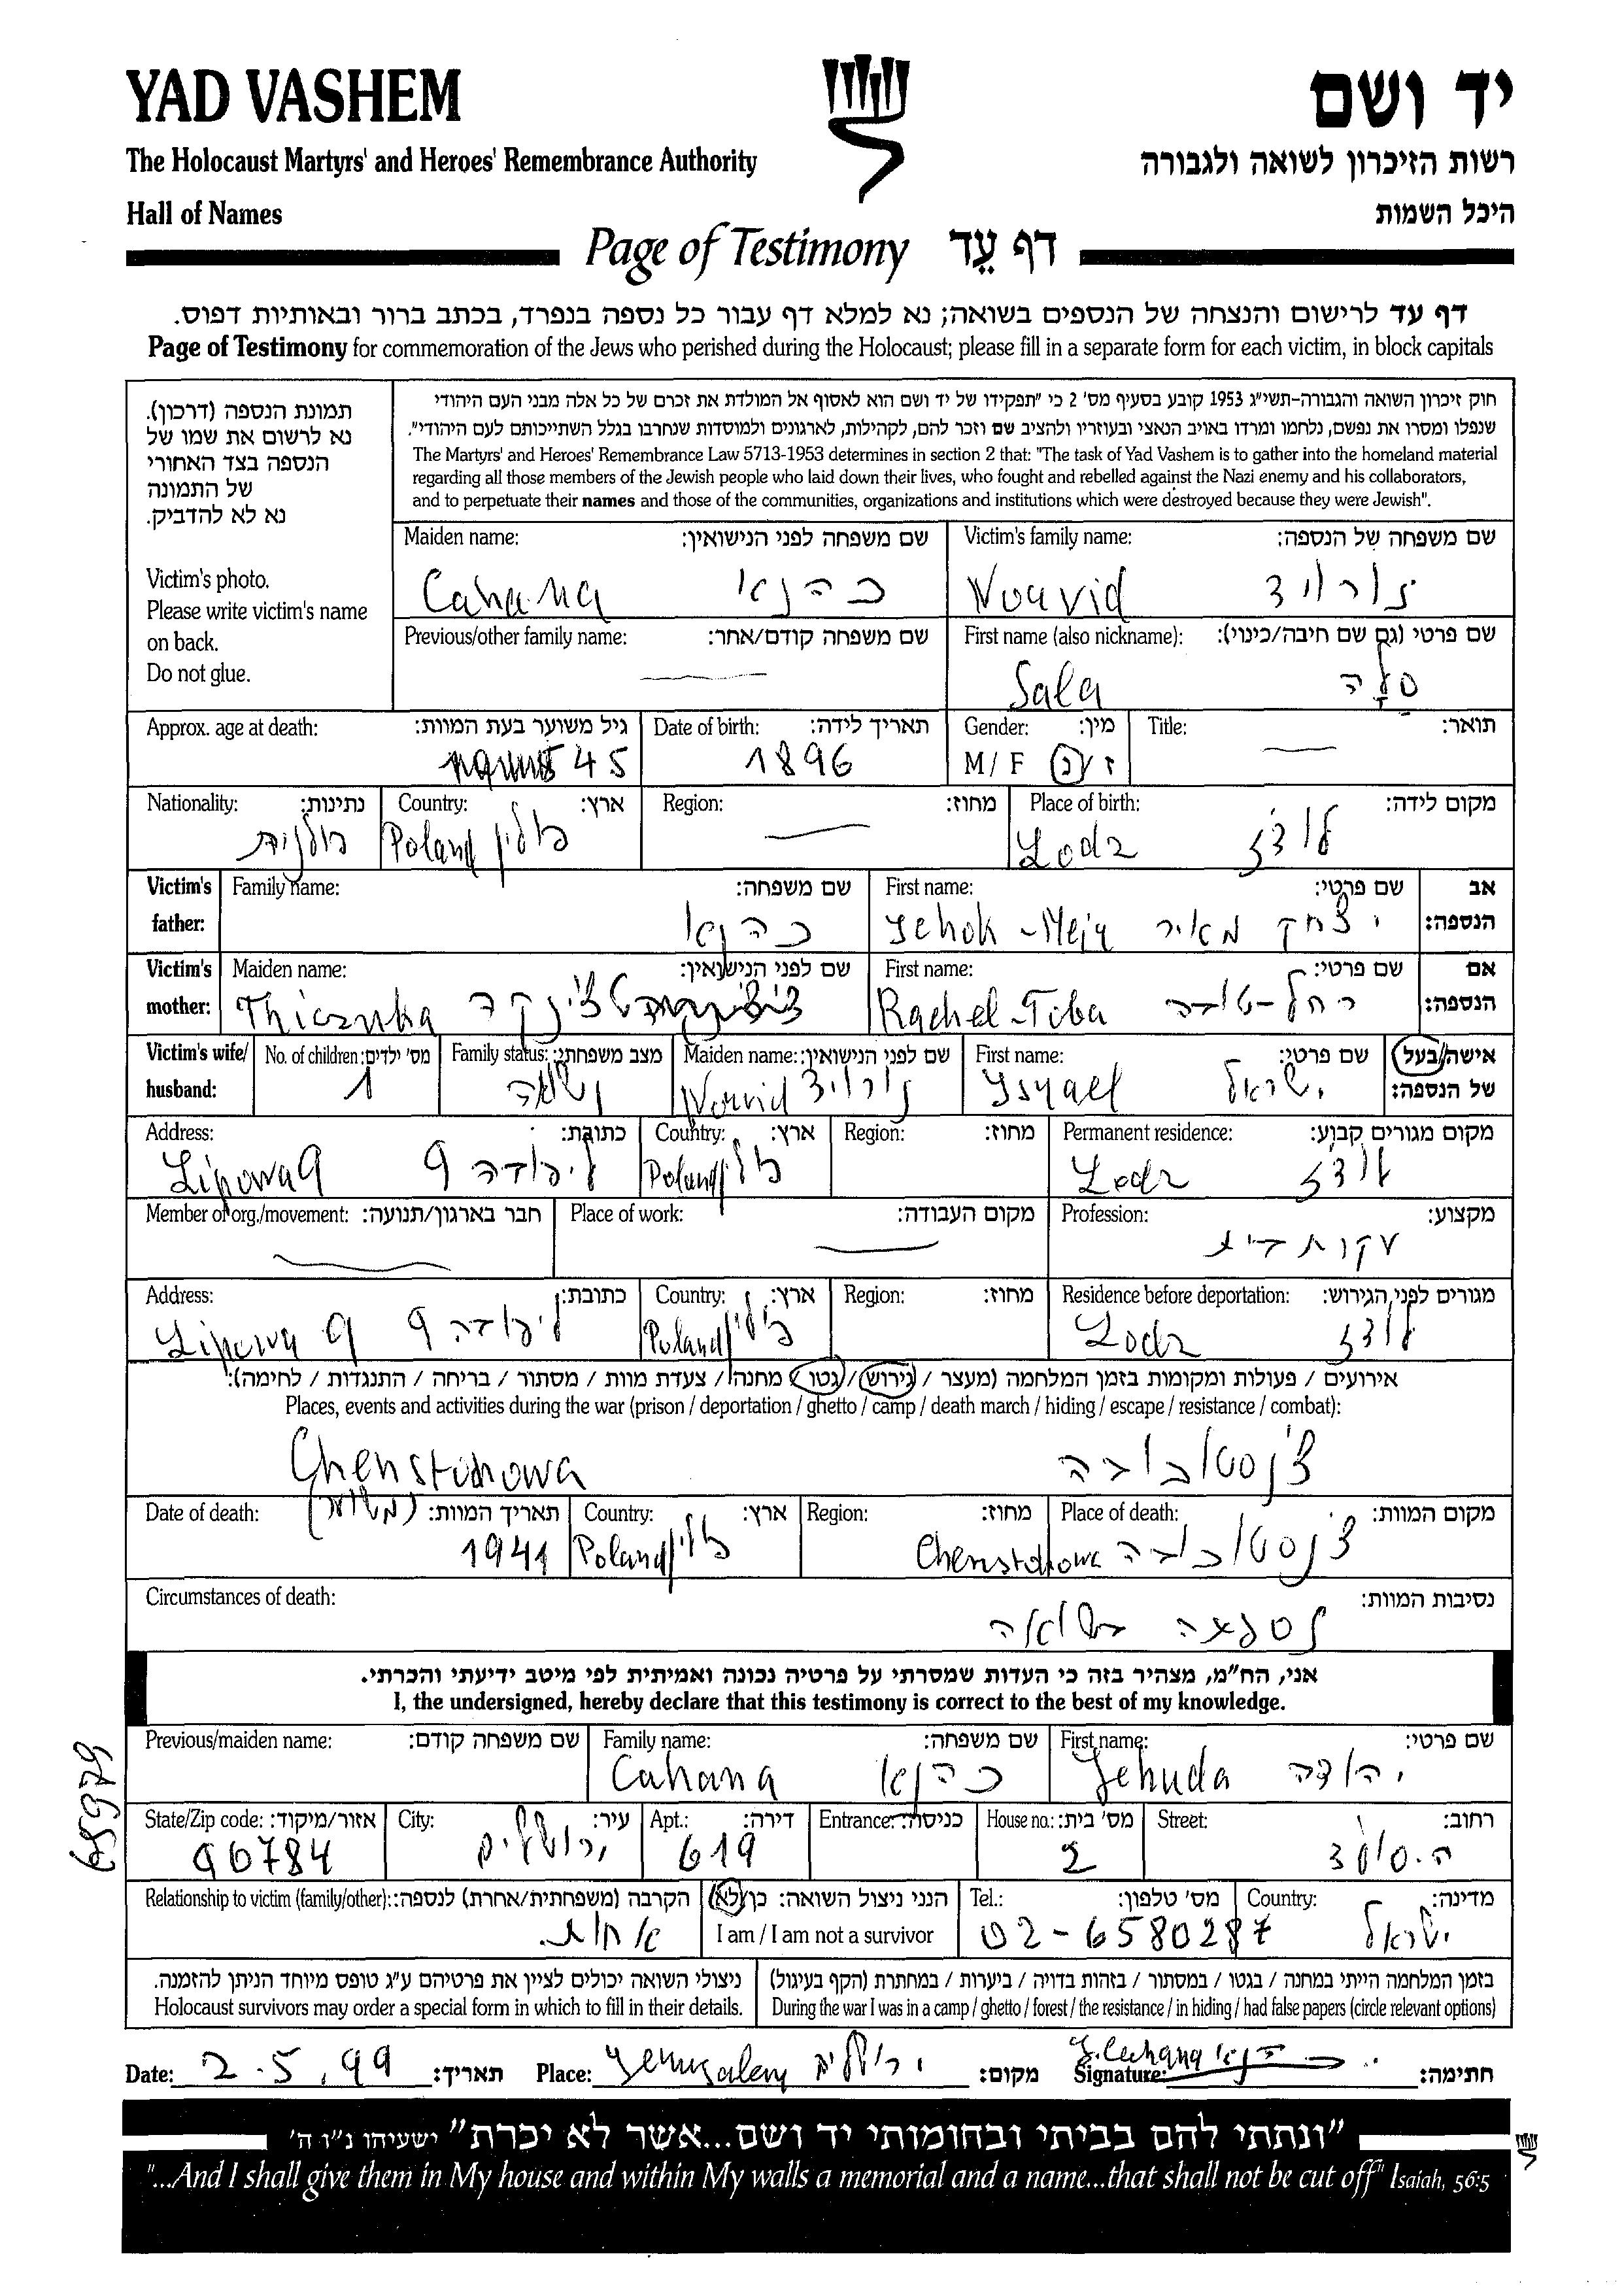 YAD VASHEM
יד ושם
The Holocaust Martyrs' and Heroes' Remembrance Authority
רשות הזיכרון לשואה ולגבורה
Hall of Names
היכל השמות
Page of Testimony דף עֵד
דף עד לרישום והנצחה של הנספים בשואה; נא למלא דף עבור כל נספה בנפרד, בכתב ברור ובאותיות דפוס.
Page of Testimony for commemoration of the Jews who perished during the Holocaust; please fill in a separate form for each victim, in block capitals
תמונת הנספה (דרכון).
נא לרשום את שמו של
הנספה בצד האחורי
של התמונה
נא לא להדביק.
Victim's photo.
Please write victim's name
on back.
Do not glue.
חוק זיכרון השואה והגבורה-תשי"ג 1953 קובע בסעיף מס' 2 כי "תפקידו של יד ושם הוא לאסוף אל המולדת את זכרם של כל אלה מבני העם היהודי
שנפלו ומסרו את נפשם, נלחמו ומרדו באויב הנאצי ובעוזריו ולהציב שם וזכר להם, לקהילות, לארגונים ולמוסדות שנחרבו בגלל השתייכותם לעם היהודי".
The Martyrs' and Heroes' Remembrance Law 5713-1953 determines in section 2 that: "The task of Yad Vashem is to gather into the homeland material
regarding all those members of the Jewish people who laid down their lives, who fought and rebelled against the Nazi enemy and his collaborators,
and to perpetuate their names and those of the communities, organizations and institutions which were destroyed because they were Jewish".
Victim's family name: שם משפחה של הנספה:
Norvid נורויד
Maiden name: שם משפחה לפני הנישואין:
Cahana כהנא
First name (also nickname): שם פרטי (גם שם חיבה/כינוי):
Sala סלה
Previous/other family name: שם משפחה קודם/אחר:
Title: תואר:
Gender: מין:
M / F ז / נ
Date of birth: תאריך לידה:
1896
Approx. age at death: גיל משוער בעת המוות:
45
Place of birth: מקום לידה:
Lodz לודז
Region: מחוז:
Country: ארץ:
Poland פולין
Nationality: נתינות:
פולנית
Victim's father: אב הנספה:
First name: שם פרטי:
יצחק מאיר
Family name: שם משפחה:
כהנא
Victim's mother: אם הנספה:
First name: שם פרטי:
Rachel-Toba רחל-טובה
Maiden name: שם לפני הנישואין:
Victim's wife/ husband: אישה/בעל של הנספה:
First name: שם פרטי:
Israel ישראל
Maiden name: שם לפני הנישואין:
Norvid נורויד
Family status: מצב משפחתי:
נשואה
No. of children: מס' ילדים:
1
Permanent residence: מקום מגורים קבוע:
Lodz לודז
Region: מחוז:
Country: ארץ:
Poland פולין
Address: כתובת:
Lipowa 9 ליפובה 9
Profession: מקצוע:
עקרת בית
Place of work: מקום העבודה:
Member of org./movement: חבר בארגון/תנועה:
Residence before deportation: מגורים לפני הגירוש:
Lodz לודז
Region: מחוז:
Country: ארץ:
Poland פולין
Address: כתובת:
Lipowa 9 ליפובה 9
אירועים / פעולות ומקומות בזמן המלחמה (מעצר / גירוש / גטו / מחנה / צעדת מוות / מסתור / בריחה / התנגדות / לחימה):
Places, events and activities during the war (prison / deportation / ghetto / camp / death march / hiding / escape / resistance / combat):
Chenstohowa צ'נסטוכובה
Place of death: מקום המוות:
Chenstohowa צ'נסטוכובה
Region: מחוז:
Country: ארץ:
Poland פולין
Date of death: תאריך המוות: (משוער)
1941
Circumstances of death: נסיבות המוות:
נספתה בשואה
אני, הח"מ, מצהיר בזה כי העדות שמסרתי על פרטיה נכונה ואמיתית לפי מיטב ידיעתי והכרתי.
I, the undersigned, hereby declare that this testimony is correct to the best of my knowledge.
First name: שם פרטי:
Jehuda יהודה
Family name: שם משפחה:
Cahana כהנא
Previous/maiden name: שם משפחה קודם:
Street: רחוב:
House no.: מס' בית:
2
Entrance: כניסה:
Apt.: דירה:
619
City: עיר:
ירושלים
State/Zip code: אזור/מיקוד:
96784
Country: מדינה:
ישראל
Tel.: מס' טלפון:
02-6580287
הנני ניצול השואה: כן/לא
I am / I am not a survivor
Relationship to victim (family/other): הקרבה (משפחתית/אחרת) לנספה:
בזמן המלחמה הייתי במחנה / בגטו / במסתור / בזהות בדויה / ביערות / במחתרת (הקף בעיגול)
During the war I was in a camp / ghetto / forest / the resistance / in hiding / had false papers (circle relevant options)
ניצולי השואה יכולים לציין את פרטיהם ע"ג טופס מיוחד הניתן להזמנה.
Holocaust survivors may order a special form in which to fill in their details.
Date: 2.5.99 תאריך: Place: Jerusalem ירושלים מקום: Signature: חתימה:
"ונתתי להם בביתי ובחומותי יד ושם...אשר לא יכרת" ישעיהו נ"ו ה'
"...And I shall give them in My house and within My walls a memorial and a name...that shall not be cut off" Isaiah, 56:5